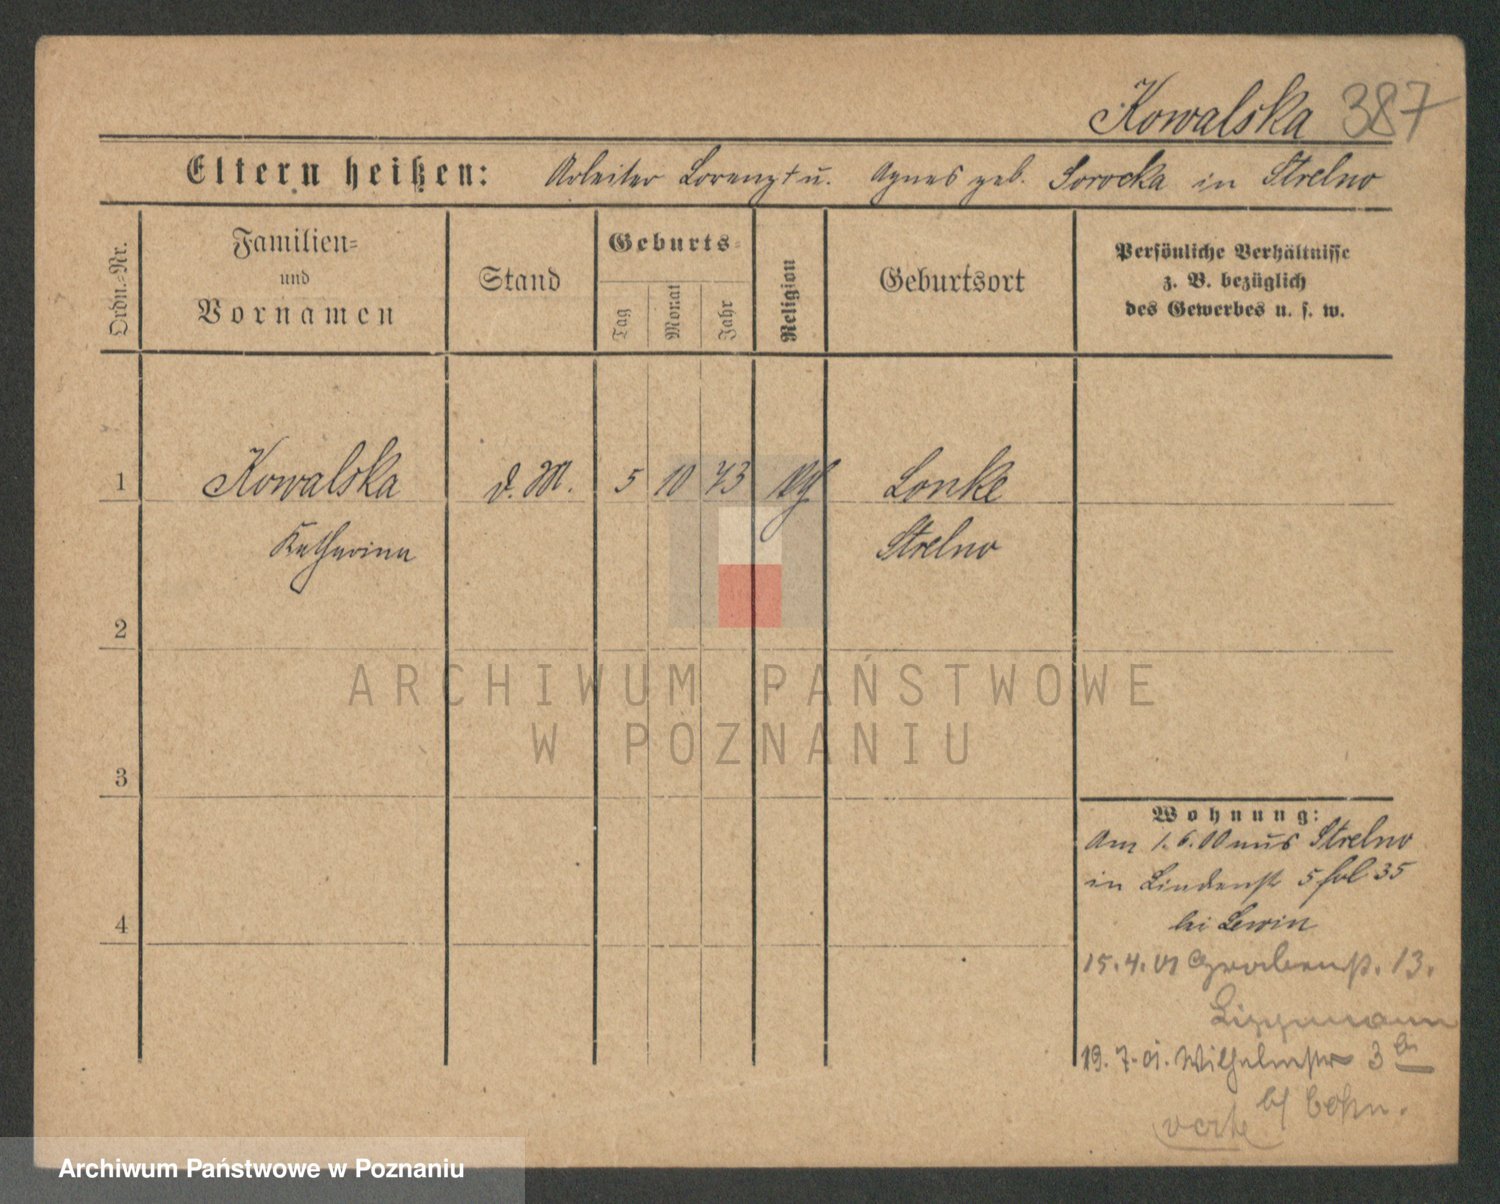 Kowalska 387
Eltern heißen: Arbeiter Lorenz + u. Agnes geb. Sorocka in Strelno
Ordn.-Nr.
Familien-
und
Vornamen
Stand
Geburts-
Tag
Monat
Jahr
Religion
Geburtsort
Persönliche Verhältnisse
z. B. bezüglich
des Gewerbes u. s. w.
1 Kowalska d. M. 5 10 73 Lonke
Katharina Strelno
2
3
4
Wohnung:
Am 1. 6. 00 aus Strelno
in Lindenst 5 fol 35
bei Lewin
15.4.01 Grabenst. 13.
Lippmann
19.7.01. Wilhelmstr 3
b/ Cohn.
verte
ARCHIWUM PAŃSTWOWE
W POZNANIU
Archiwum Państwowe w Poznaniu